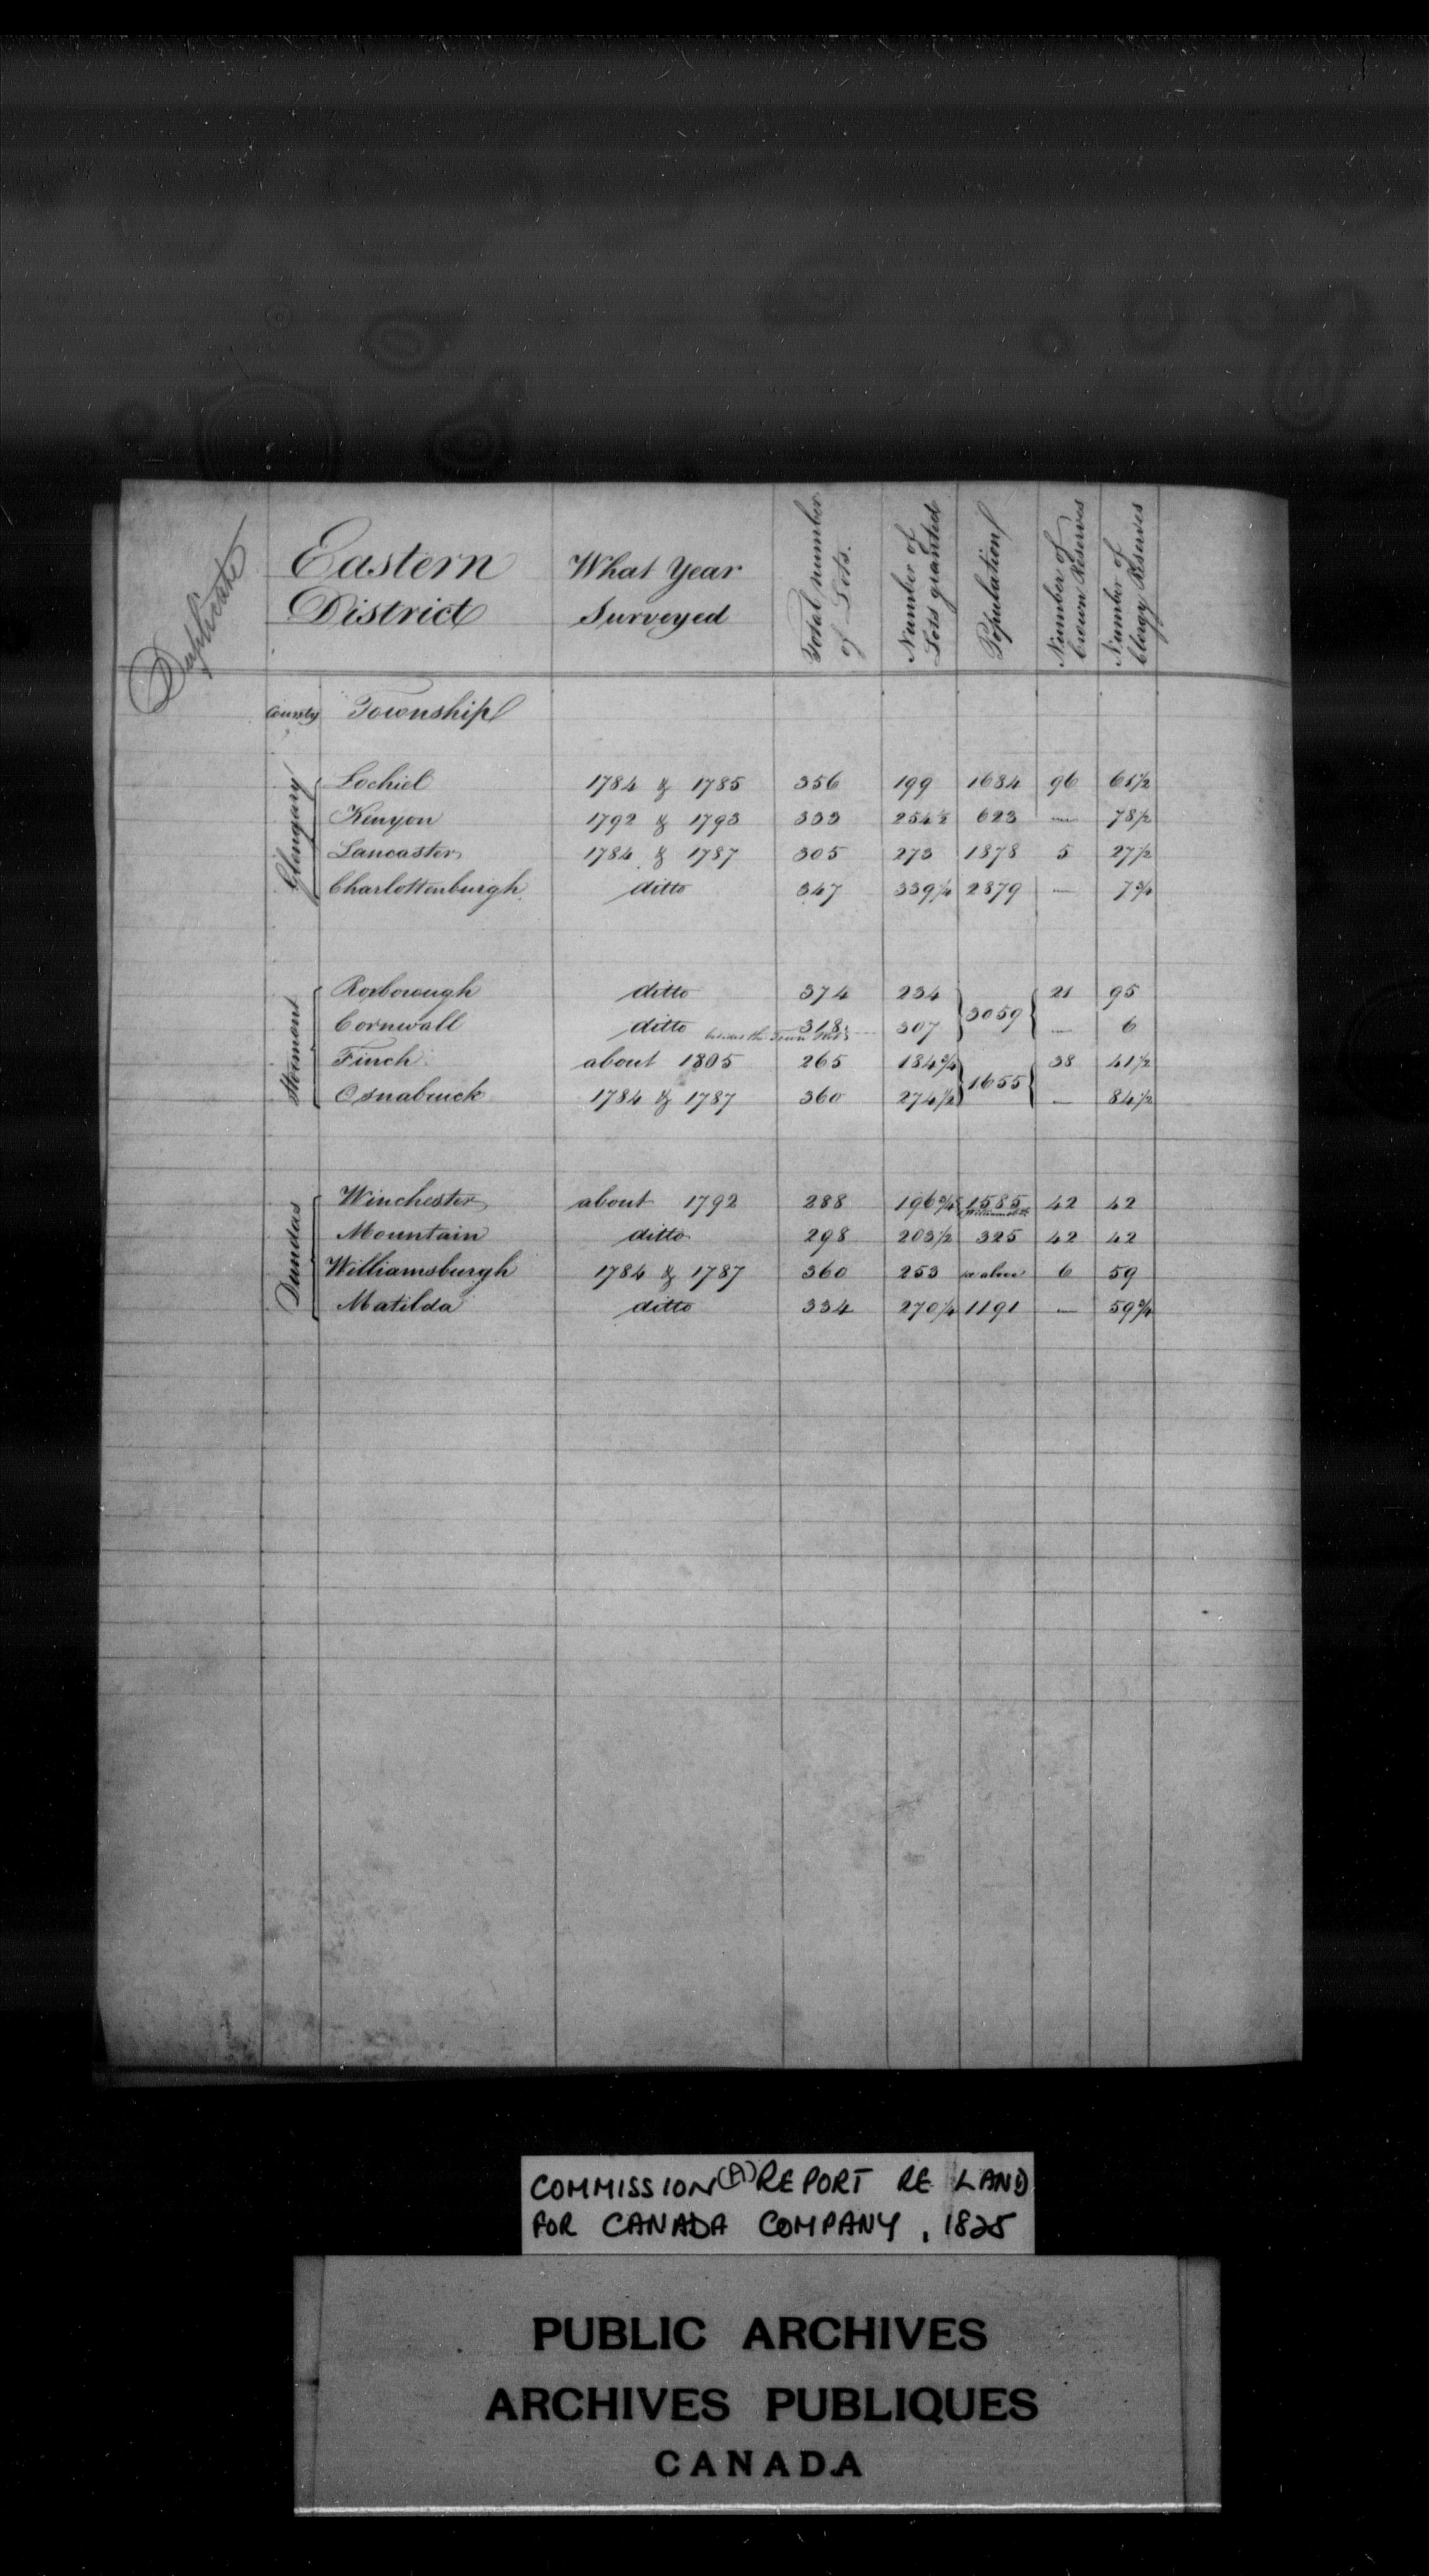 Duplicate
Eastern District
What Year Surveyed
Total number of Lots.
Number of Lots granted
Population
Number of Crown Reserves
Number of Clergy Reserves
County Township
Glengary
Lochiel 1784 & 1785 356 199 1684 96 61 1/2
Kenyon 1792 & 1793 333 254 1/2 623 — 78 1/2
Lancaster 1784 & 1787 305 273 1878 5 27 1/2
Charlottenburgh ditto 347 339 1/4 2879 — 7 3/4
Stormont
Roxborough ditto 374 234 3059 21 95
Cornwall ditto besides the Town 318 307 — 6
Finch about 1805 265 184 3/4 1655 38 41 1/2
Osnabruck 1784 & 1787 360 274 1/2 — 84 1/2
Dundas
Winchester about 1792 288 196 3/4 1585 42 42
Mountain ditto 298 203 1/2 325 42 42
Williamsburgh 1784 & 1787 360 253 as above 6 59
Matilda ditto 334 270 1/4 1191 — 59 3/4
COMMISSION (A) REPORT RE LAND
FOR CANADA COMPANY, 1825
PUBLIC ARCHIVES
ARCHIVES PUBLIQUES
CANADA